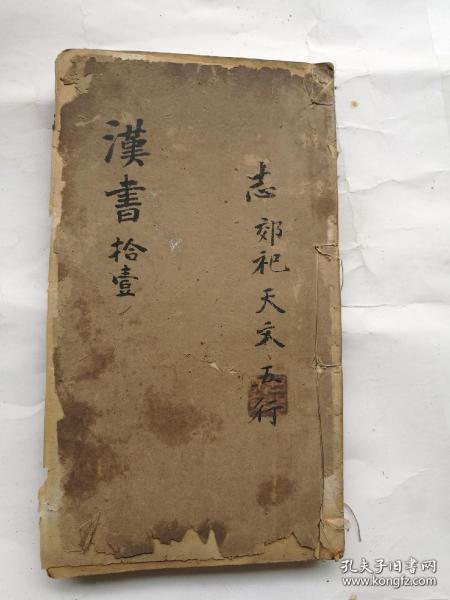 志 郊祀 天文 五行
漢書 拾壹
孔夫子旧书网
www.kongfz.com